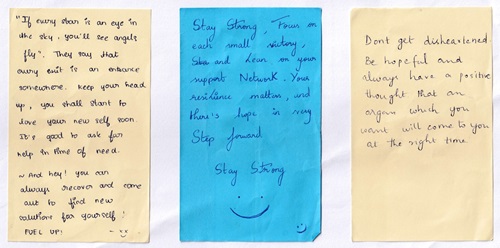 "If every star is an eye in
the sky, you'll see angels
fly". They say that
every exit is an entrance
somewhere. Keep your head
up, you shall start to
love your new self soon.
It's good to ask for
help in time of need.
~ And hey! you can
always recover and come
out to find new
solutions for yourself!
FUEL UP!
Stay Strong, Focus on
each small victory,
and Lean on your
support Network. Your
resilience matters, and
there's hope in every
Step forward
Stay Strong
Dont get disheartened
Be hopeful and
always have a positive
thought that an
organ which you
want will come to you
at the right time